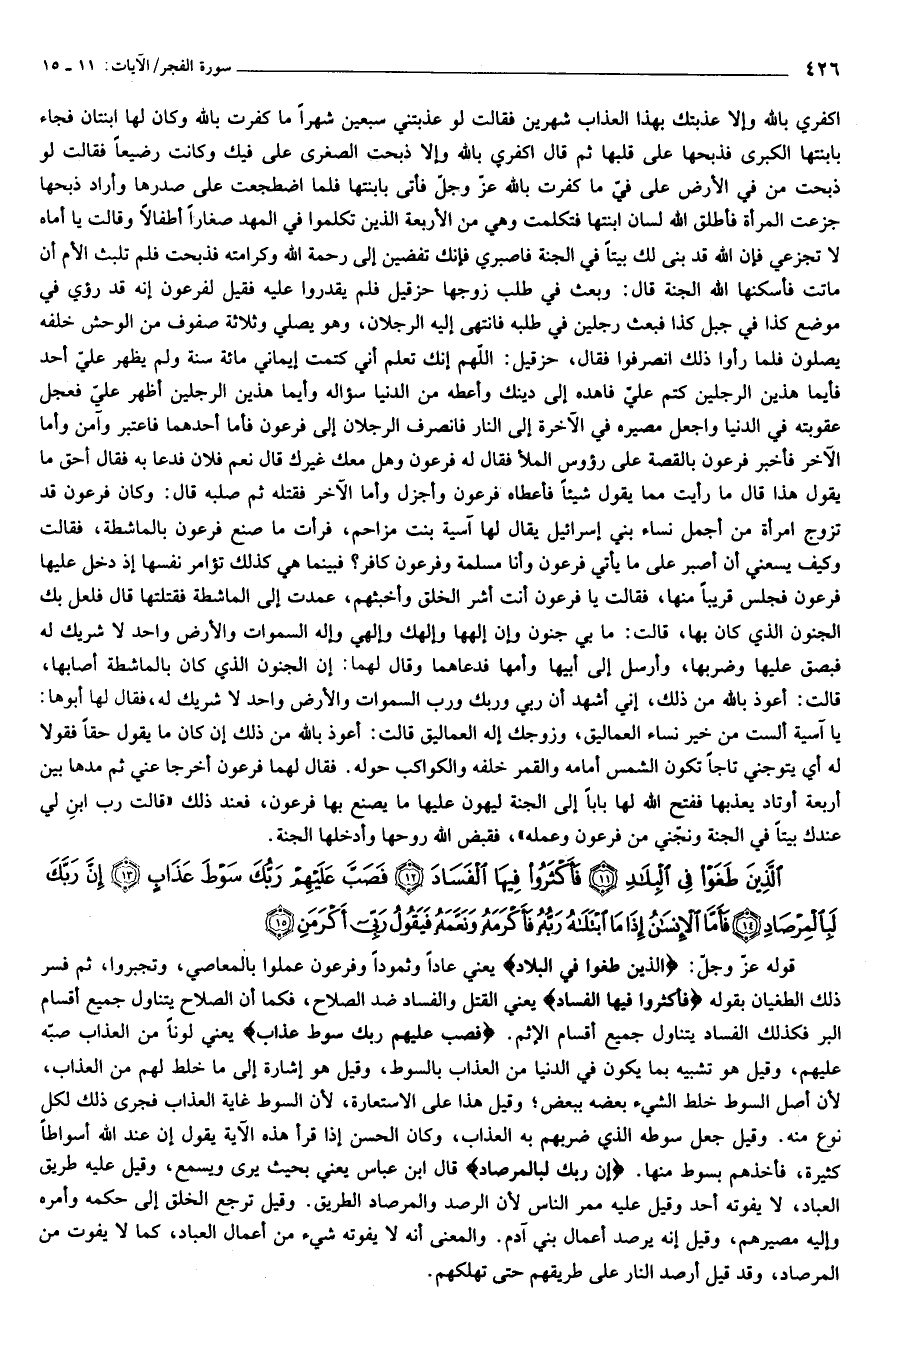 ٤٢٦ سورة الفجر/الآيات: ١١ ـ ١٥
اكفري بالله وإلا عذبتك بهذا العذاب شهرين فقالت لو عذبتني سبعين شهراً ما كفرت بالله وكان لها ابنتان فجاء
بابنتها الكبرى فذبحها على قلبها ثم قال اكفري بالله وإلا ذبحت الصغرى على فيك وكانت رضيعاً فقالت لو
ذبحت من في الأرض على فيّ ما كفرت بالله عزّ وجلّ فأتى بابنتها فلما اضطجعت على صدرها وأراد ذبحها
جزعت المرأة فأطلق الله لسان ابنتها فتكلمت وهي من الأربعة الذين تكلموا في المهد صغاراً أطفالاً وقالت يا أماه
لا تجزعي فإن الله قد بنى لك بيتاً في الجنة فاصبري فإنك تفضين إلى رحمة الله وكرامته فذبحت فلم تلبث الأم أن
ماتت فأسكنها الله الجنة قال: وبعث في طلب زوجها حزقيل فلم يقدروا عليه فقيل لفرعون إنه قد رؤي في
موضع كذا في جبل كذا فبعث رجلين في طلبه فانتهى إليه الرجلان، وهو يصلي وثلاثة صفوف من الوحش خلفه
يصلون فلما رأوا ذلك انصرفوا فقال، حزقيل: اللّهم إنك تعلم أني كتمت إيماني مائة سنة ولم يظهر عليّ أحد
فأيما هذين الرجلين كتم عليّ فاهده إلى دينك وأعطه من الدنيا سؤاله وأيما هذين الرجلين أظهر عليّ فعجل
عقوبته في الدنيا واجعل مصيره في الآخرة إلى النار فانصرف الرجلان إلى فرعون فأما أحدهما فاعتبر وآمن وأما
الآخر فأخبر فرعون بالقصة على رؤوس الملأ فقال له فرعون وهل معك غيرك قال نعم فلان فدعا به فقال أحق ما
يقول هذا قال ما رأيت مما يقول شيئاً فأعطاه فرعون وأجزل وأما الآخر فقتله ثم صلبه قال: وكان فرعون قد
تزوج امرأة من أجمل نساء بني إسرائيل يقال لها آسية بنت مزاحم، فرأت ما صنع فرعون بالماشطة، فقالت
وكيف يسعني أن أصبر على ما يأتي فرعون وأنا مسلمة وفرعون كافر؟ فبينما هي كذلك تؤامر نفسها إذ دخل عليها
فرعون فجلس قريباً منها، فقالت يا فرعون أنت أشر الخلق وأخبثهم، عمدت إلى الماشطة فقتلتها قال فلعل بك
الجنون الذي كان بها، قالت: ما بي جنون وإن إلهها وإلهك وإلهي وإله السموات والأرض واحد لا شريك له
فبصق عليها وضربها، وأرسل إلى أبيها وأمها فدعاهما وقال لهما: إن الجنون الذي كان بالماشطة أصابها،
قالت: أعوذ بالله من ذلك، إني أشهد أن ربي وربك ورب السموات والأرض واحد لا شريك له،فقال لها أبوها:
يا آسية ألست من خير نساء العماليق، وزوجك إله العماليق قالت: أعوذ بالله من ذلك إن كان ما يقول حقاً فقولا
له أي يتوجني تاجاً تكون الشمس أمامه والقمر خلفه والكواكب حوله. فقال لهما فرعون أخرجا عني ثم مدها بين
أربعة أوتاد يعذبها ففتح الله لها باباً إلى الجنة ليهون عليها ما يصنع بها فرعون، فعند ذلك «قالت رب ابنِ لي
عندك بيتاً في الجنة ونجّني من فرعون وعمله»، فقبض الله روحها وأدخلها الجنة.
ٱلَّذِينَ طَغَوْا۟ فِى ٱلْبِلَـٰدِ ﴿١١﴾ فَأَكْثَرُوا۟ فِيهَا ٱلْفَسَادَ ﴿١٢﴾ فَصَبَّ عَلَيْهِمْ رَبُّكَ سَوْطَ عَذَابٍ ﴿١٣﴾ إِنَّ رَبَّكَ
لَبِٱلْمِرْصَادِ ﴿١٤﴾ فَأَمَّا ٱلْإِنسَـٰنُ إِذَا مَا ٱبْتَلَىٰهُ رَبُّهُۥ فَأَكْرَمَهُۥ وَنَعَّمَهُۥ فَيَقُولُ رَبِّىٓ أَكْرَمَنِ ﴿١٥﴾
قوله عزّ وجلّ: ﴿الذين طغوا في البلاد﴾ يعني عاداً وثموداً وفرعون عملوا بالمعاصي، وتجبروا، ثم فسر
ذلك الطغيان بقوله ﴿فأكثروا فيها الفساد﴾ يعني القتل والفساد ضد الصلاح، فكما أن الصلاح يتناول جميع أقسام
البر فكذلك الفساد يتناول جميع أقسام الإثم. ﴿فصب عليهم ربك سوط عذاب﴾ يعني لوناً من العذاب صبّه
عليهم، وقيل هو تشبيه بما يكون في الدنيا من العذاب بالسوط، وقيل هو إشارة إلى ما خلط لهم من العذاب،
لأن أصل السوط خلط الشيء بعضه ببعض؛ وقيل هذا على الاستعارة، لأن السوط غاية العذاب فجرى ذلك لكل
نوع منه. وقيل جعل سوطه الذي ضربهم به العذاب، وكان الحسن إذا قرأ هذه الآية يقول إن عند الله أسواطاً
كثيرة، فأخذهم بسوط منها. ﴿إن ربك لبالمرصاد﴾ قال ابن عباس يعني بحيث يرى ويسمع، وقيل عليه طريق
العباد، لا يفوته أحد وقيل عليه ممر الناس لأن الرصد والمرصاد الطريق. وقيل ترجع الخلق إلى حكمه وأمره
وإليه مصيرهم، وقيل إنه يرصد أعمال بني آدم. والمعنى أنه لا يفوته شيء من أعمال العباد، كما لا يفوت من
المرصاد، وقد قيل أرصد النار على طريقهم حتى تهلكهم.